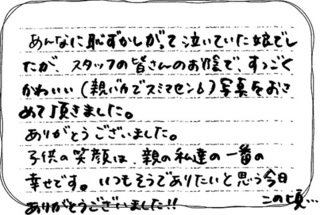 あんなに恥ずかしがって泣いていた娘でし
たが、スタッフの皆さんのお陰で、すっごく
かわいい(親バカでスミマセン💧)写真をおさ
めて頂きました。
ありがとうございました。
子供の笑顔は、親の私達の一番の
幸せです。いつもそうでありたいと思う今日
この頃…
ありがとうございました!!